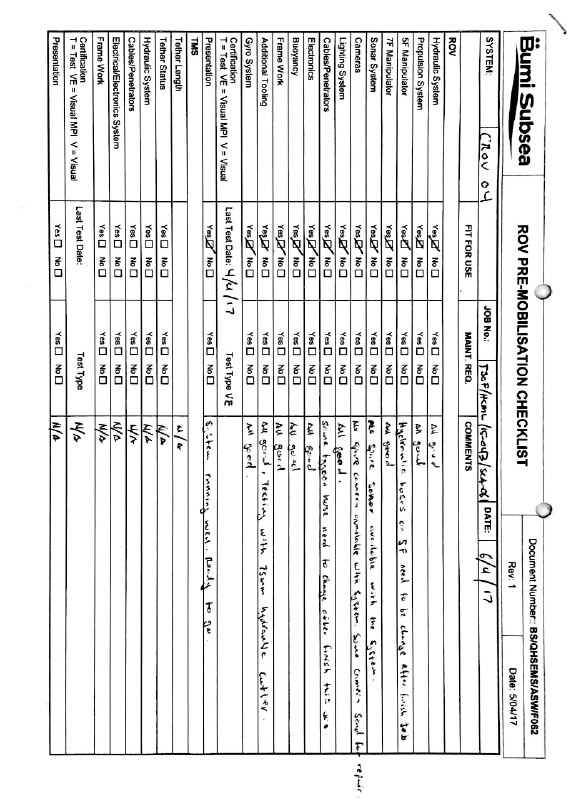 Bumi Subsea
ROV PRE-MOBILISATION CHECKLIST
Document Number:: BS/QHSEMS/ASW/F062
Rev: 1 Date: 5/04/17
SYSTEM: CROV 04 JOB No.: DATE: 6/4/17
FIT FOR USE MAINT. REQ. COMMENTS
ROV
Hydraulic System Yes No Yes No All good
Propulsion System Yes No Yes No All good
5F Manipulator Yes No Yes No Hydraulic hoses on 5F need to be change after finish job
7F Manipulator Yes No Yes No All good
Sonar System Yes No Yes No spare sonar available with the system.
Cameras Yes No Yes No No spare camera available with system. Some camera send for repair.
Lighting System Yes No Yes No All good.
Cables/Penetrators Yes No Yes No Some hose need to change after finish this job
Electronics Yes No Yes No All good
Buoyancy Yes No Yes No All good
Frame Work Yes No Yes No All good
Additional Tooling Yes No Yes No All good, Testing with 75mm hydraulic cutter.
Gyro System Yes No Yes No All good.
Certification
T = Test VE = Visual MPI V = Visual Last Test Date: 4/4/17 Test Type VE
Presentation Yes No Yes No System running well. Ready to go.
TMS
Tether Length N/A
Tether Status Yes No Yes No N/A
Hydraulic System Yes No Yes No N/A
Cables/Penetrators Yes No Yes No N/A
Electrical/Electronics System Yes No Yes No N/A
Frame Work Yes No Yes No N/A
Certification
T = Test VE = Visual MPI V = Visual Last Test Date: Test Type N/A
Presentation Yes No Yes No N/A